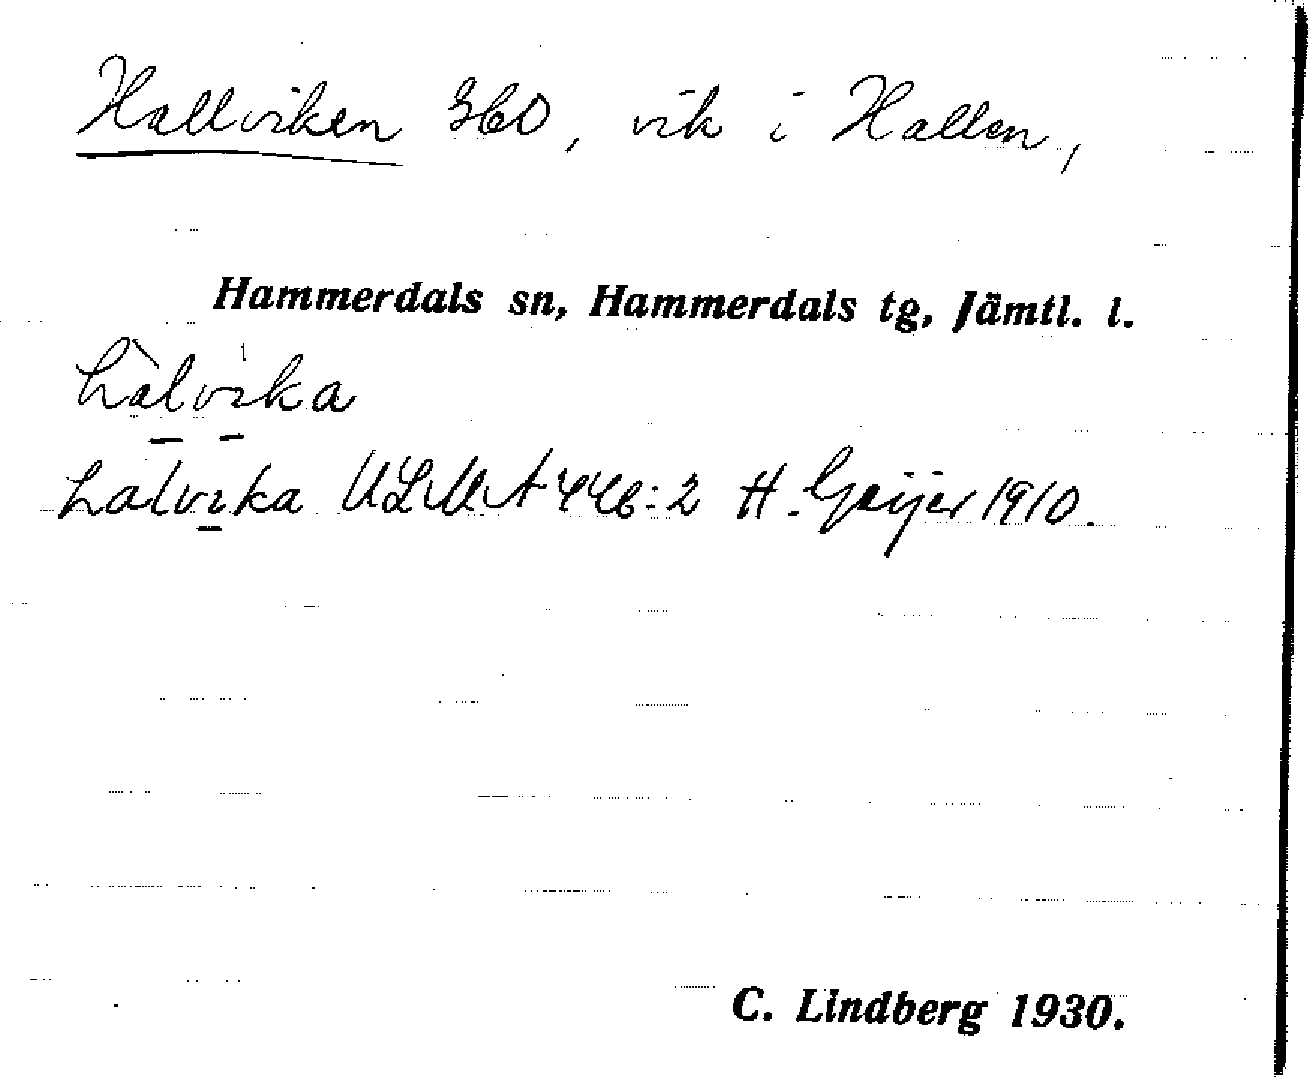 Hallviken 360, vik i Hallen,
Hammerdals sn, Hammerdals tg, Jämtl. l.
hàlvika
halvika ULMA 446:2 H. Geijer 1910.
C. Lindberg 1930.